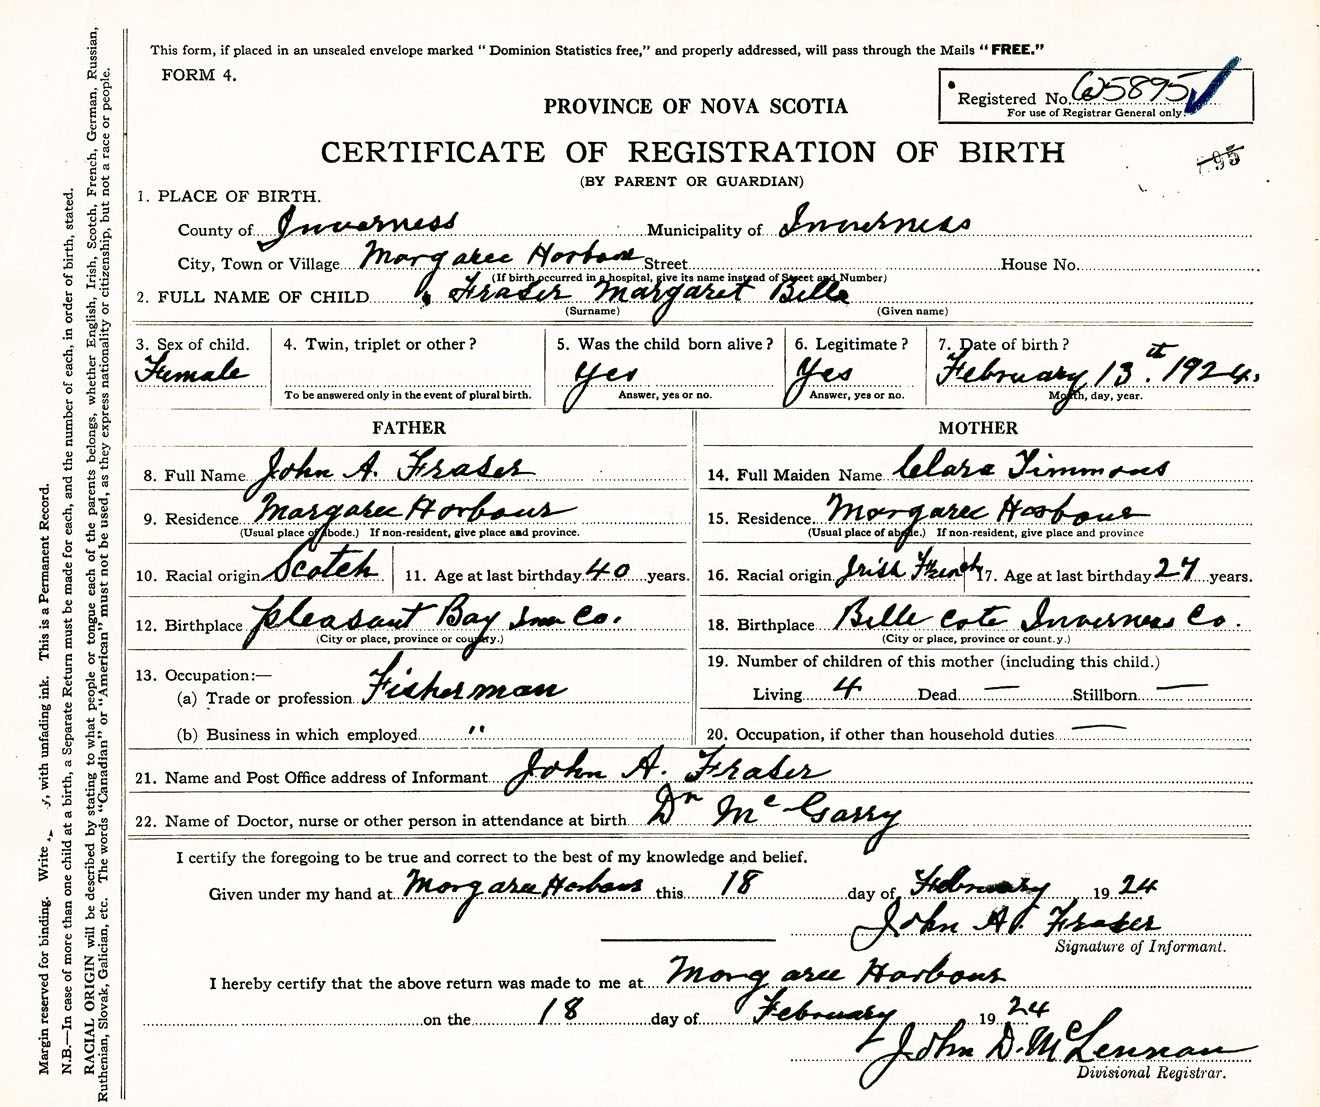 This form, if placed in an unsealed envelope marked “ Dominion Statistics free,” and properly addressed, will pass through the Mails “ FREE.”
FORM 4.
Registered No. 65895
For use of Registrar General only.
PROVINCE OF NOVA SCOTIA
CERTIFICATE OF REGISTRATION OF BIRTH
95
(BY PARENT OR GUARDIAN)
1. PLACE OF BIRTH.
County of Inverness Municipality of Inverness
City, Town or Village Margaree Harbour Street House No.
(If birth occurred in a hospital, give its name instead of Street and Number)
2. FULL NAME OF CHILD Fraser Margaret Belle
(Surname) (Given name)
3. Sex of child. 4. Twin, triplet or other ? 5. Was the child born alive ? 6. Legitimate ? 7. Date of birth ?
Female yes Yes February 13th. 1924.
To be answered only in the event of plural birth. Answer, yes or no. Answer, yes or no. Month, day, year.
FATHER MOTHER
8. Full Name John A. Fraser 14. Full Maiden Name Clara Timmons
9. Residence Margaree Harbour 15. Residence Margaree Harbour
(Usual place of abode.) If non-resident, give place and province. (Usual place of abode.) If non-resident, give place and province
10. Racial origin Scotch 11. Age at last birthday 40 years. 16. Racial origin Irish French 17. Age at last birthday 27 years.
12. Birthplace Pleasant Bay Inv Co. 18. Birthplace Belle Cote Inverness Co.
(City or place, province or county.) (City or place, province or county.)
13. Occupation:— 19. Number of children of this mother (including this child.)
(a) Trade or profession Fisherman Living 4 Dead — Stillborn —
(b) Business in which employed " 20. Occupation, if other than household duties —
21. Name and Post Office address of Informant John A. Fraser
22. Name of Doctor, nurse or other person in attendance at birth Dr McGarry
I certify the foregoing to be true and correct to the best of my knowledge and belief.
Given under my hand at Margaree Harbour this 18 day of February 1924
John A. Fraser
Signature of Informant.
I hereby certify that the above return was made to me at Margaree Harbour
on the 18 day of February 1924
John D. McLennan
Divisional Registrar.
Margin reserved for binding. Write y, with unfading ink. This is a Permanent Record.
N.B.—In case of more than one child at a birth, a Separate Return must be made for each, and the number of each, in order of birth, stated.
RACIAL ORIGIN will be described by stating to what people or tongue each of the parents belongs, whether English, Irish, Scotch, French, German, Russian,
Ruthenian, Slovak, Galician, etc. The words “Canadian” or “American” must not be used, as they express nationality or citizenship, but not a race or people.